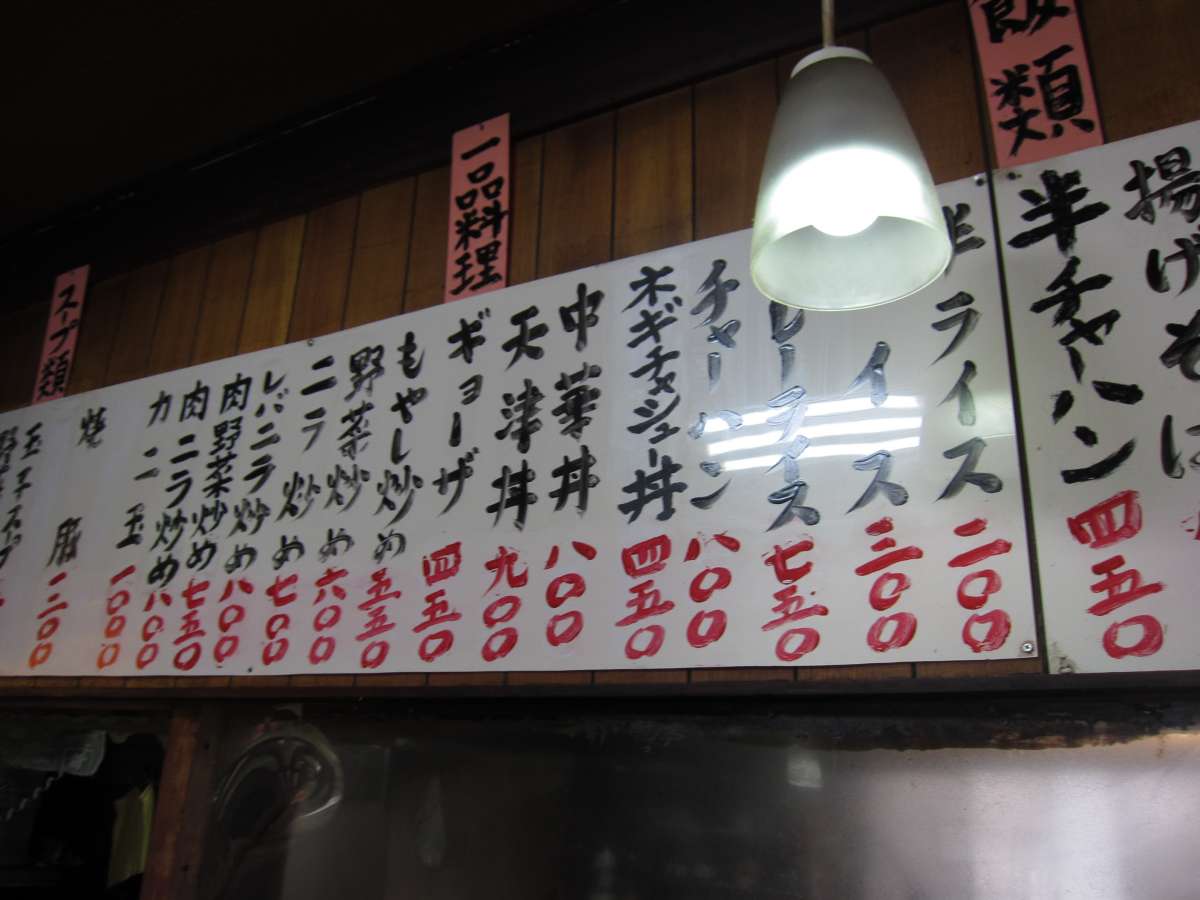 飯類
一品料理
スープ類
揚げそば
半チャーハン 四五〇
半ライス 二〇〇
ライス 三〇〇
レーライス 七五〇
チャーハン 八〇〇
ネギチャシュー丼 四五〇
中華丼 八〇〇
天津丼 九〇〇
ギョーザ 四五〇
もやし炒め 五五〇
野菜炒め 六〇〇
ニラ炒め 七〇〇
レバニラ炒め 七〇〇
肉野菜炒め 八〇〇
肉ニラ炒め 七五〇
カニ玉 八〇〇
焼豚 一二〇〇
玉子スープ
野菜スープ